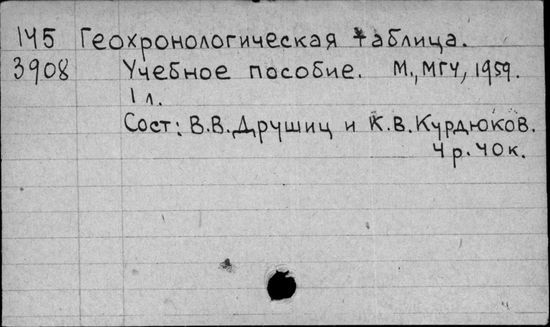 145 Геохронологическая таблица.
3908 Учебное пособие. М., МГУ, 1959.
1 л.
Сост: В.В.Друшиц и К.В.Курдюков.
4 р. 40 к.